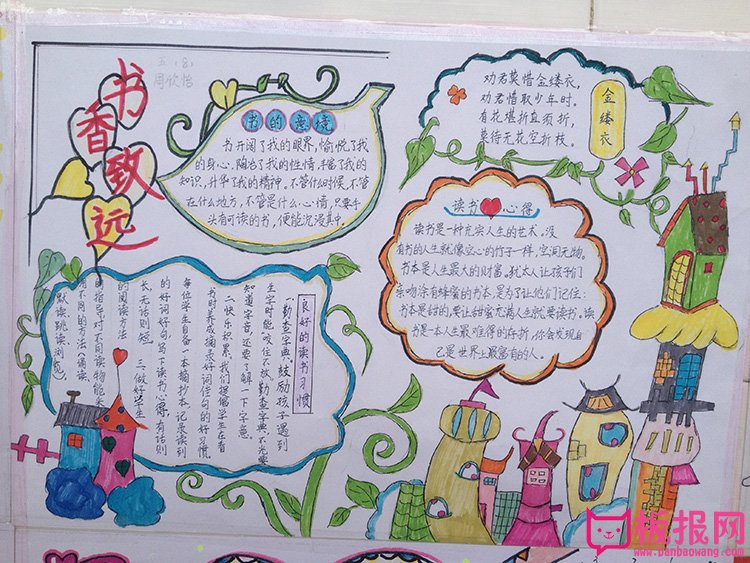 五（8）
周欣怡
书香致远
书的意境
书开阔了我的眼界,愉悦了我
的身心,陶冶了我的性情,丰富了我的
知识,升华了我的精神,不管什么时候,不管
在什么地方,不管是什么心情,只要手
头有可读的书,便能沉浸其中。
金缕衣
劝君莫惜金缕衣,
劝君惜取少年时。
有花堪折直须折,
莫待无花空折枝。
读书心得
读书是一种充实人生的艺术,没
有书的人生就像空心的竹子一样,空洞无物。
书本是人生最大的财富。犹太人让孩子们
亲吻涂有蜂蜜的书本,是为了让他们记住:
书本是甜的,要让甜蜜充满人生就要读书。读
书是一本人生最难得的存折,你会发现自
己是世界上最富有的人。
良好的读书习惯
一、勤查字典。鼓励孩子遇到
生字时能咬住不放,勤查字典,不光要
知道字音,还要了解一下字意。
二、快乐积累。我们提倡学生在看
书时养成摘录好词佳句的好习惯
每位学生自备一本摘抄本,记录读到
的好词好句,写下读书心得,有话则
长,无话则短。三、做好学生
的阅读方法
的指导,对不同读物能采
用不同的方法（诵读、
默读、跳读、浏览）。
板报网
www.banbaowang.com